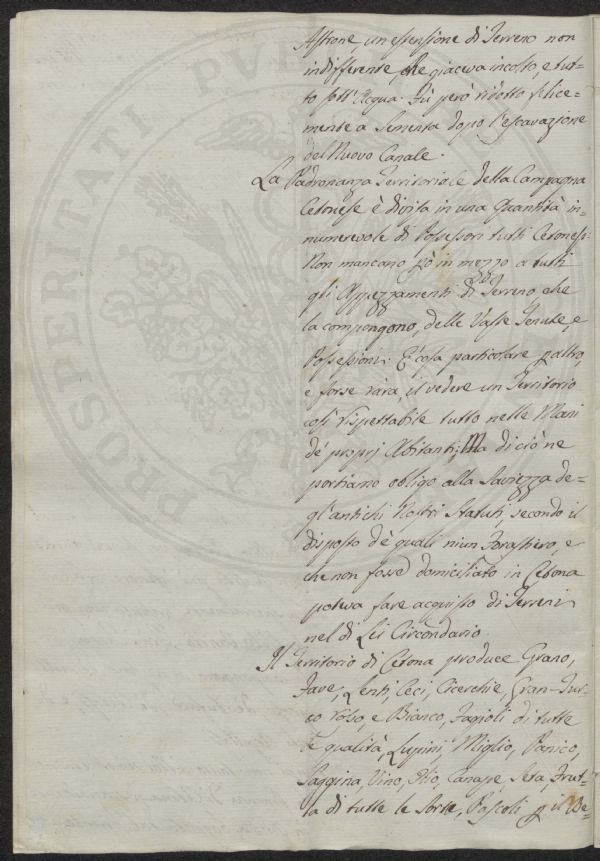 Astrone, un estensione di Terreno non
indifferente, che giaceva incolto, e tut=
to sott'Acqua. Fù però ridotto felice=
mente a Sementa dopo l'escavazione
del Nuovo Canale.
La Padronanza Territoriale della Campagna
Cetonese è divisa in una Quantità in=
numerevole di Possessori tutti Cetonesi:
Non mancano pò in mezzo a tutti
gli Appezzamenti di Terreno che
la compongono, delle Vaste Tenute, e
Possessioni. E' cosa particolare paltro,
e forse rara, il vedere un Territorio
così rispettabile tutto nelle Mani
de' proprj Abitanti; Ma di ciò ne
portiamo obligo alla Saviezza de=
gl'antichi Nostri Statuti, secondo il
disposto de' quali niun Forastiero, e
che non fosse domiciliato in Cetona
poteva fare acquisto di Terreni
nel di Lei Circondario.
Il Territorio di Cetona produce Grano,
Fave, Lenti, Ceci, Cicerchie, Gran-Tur=
co rosso, e Bianco, Fagioli di tutte
le qualità, Lupini, Miglio, Panico,
Saggina, Vino, Olio, Canape, Seta, Frut=
ta di tutte le Sorte, Pascoli p il Be=
PROSPERITATI PVB